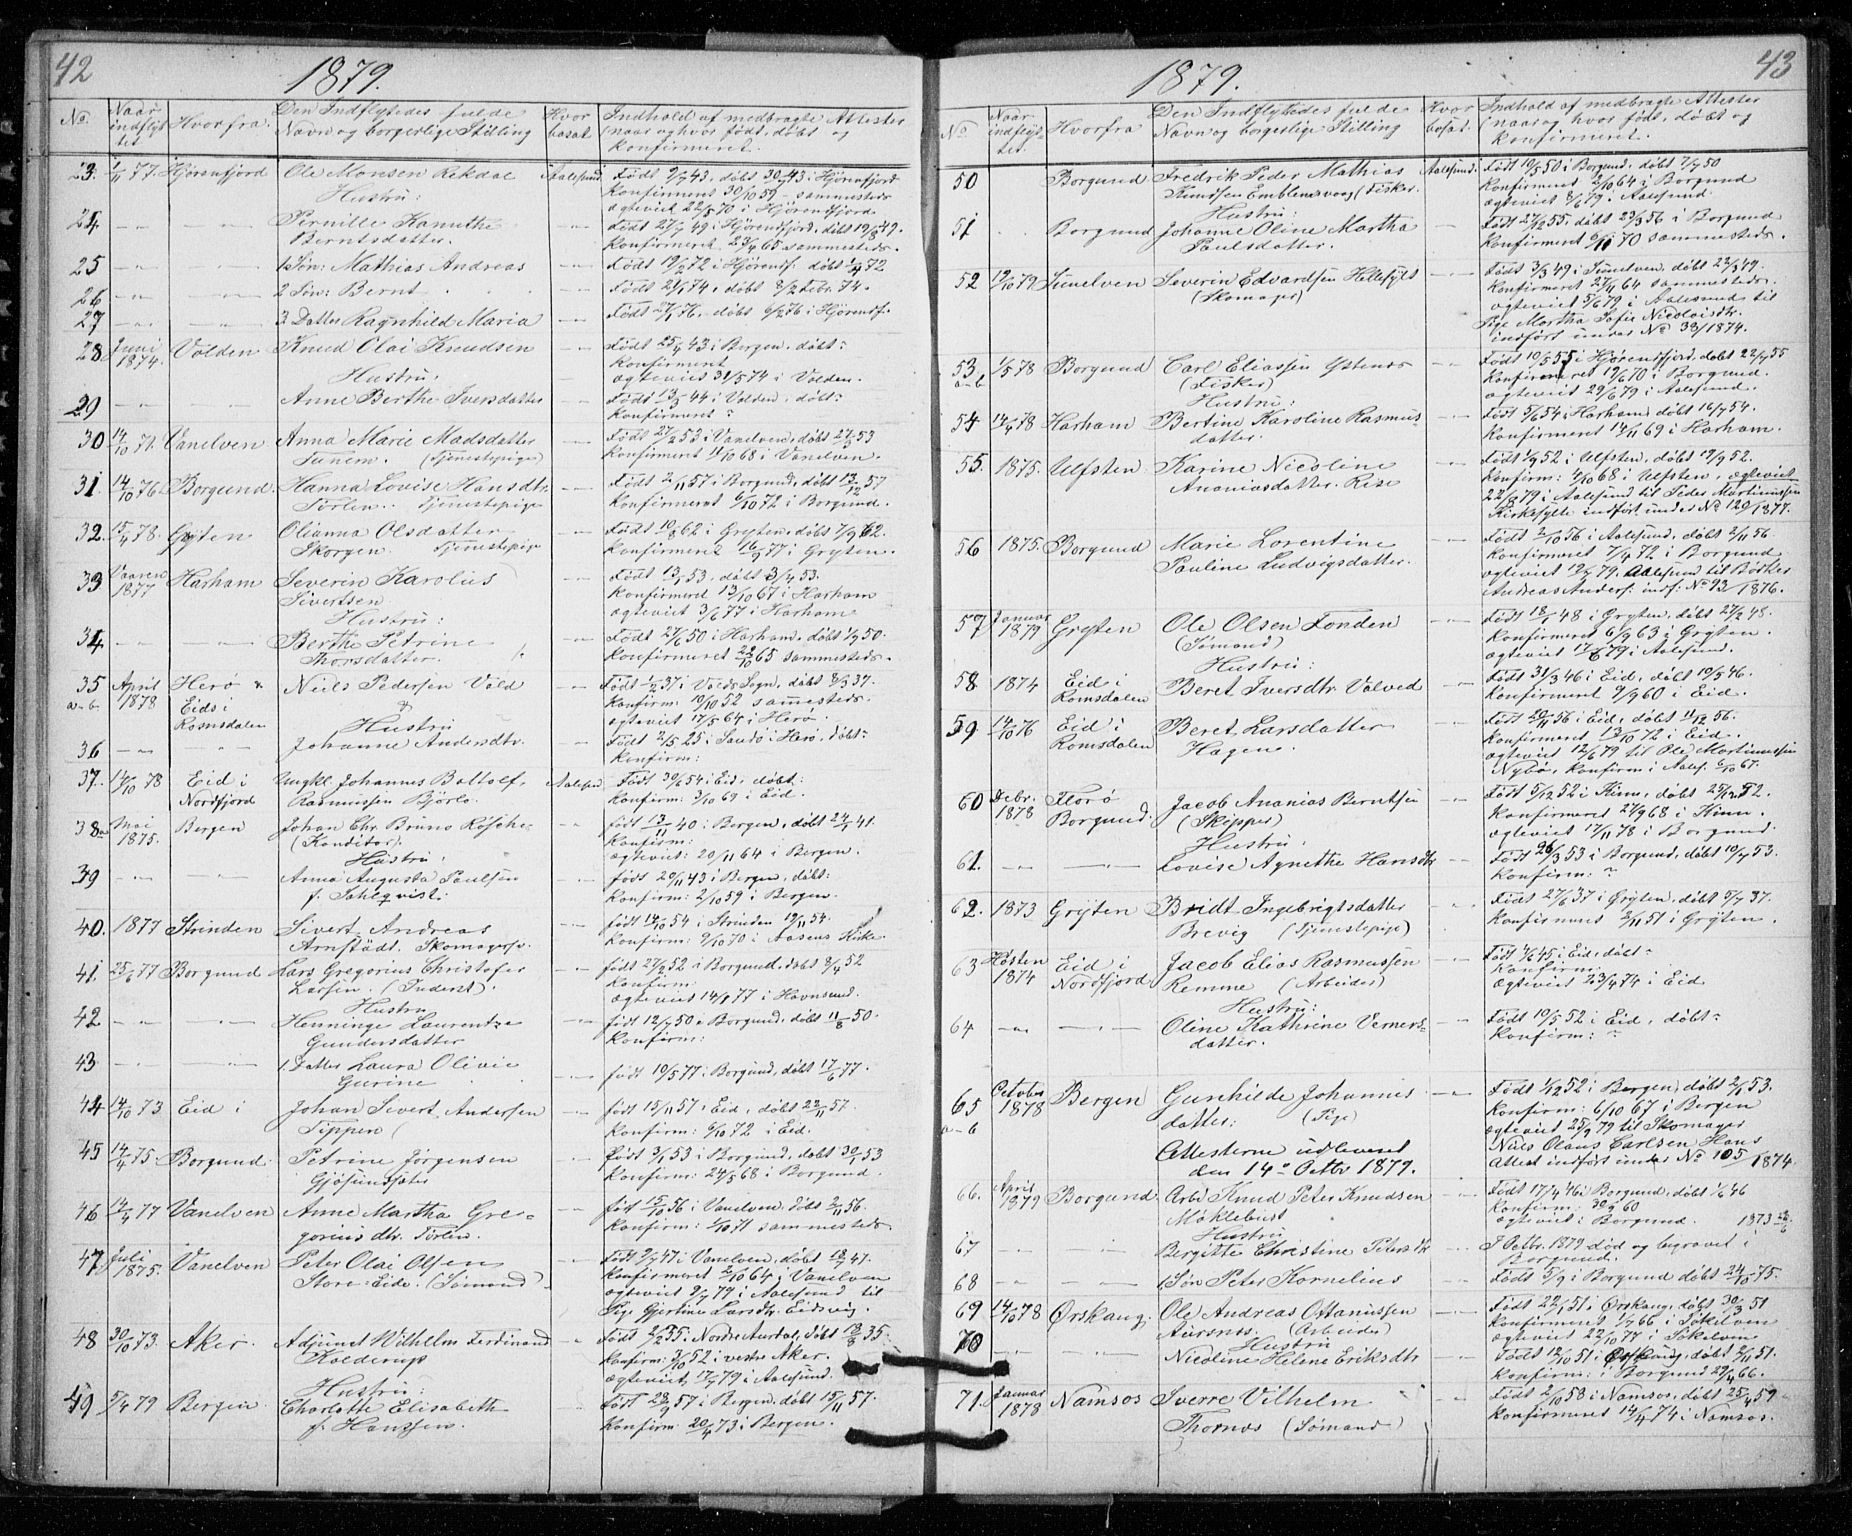 42
1879.
No
Naar indflyttet
Hvorfra
Den Indflyttedes fulde Navn og borgerlige Stilling
Hvor bosat
Indhold af medbragte Attester (naar og hvor født, døbt og konfirmeret.
23. 1/11 77. Hjörenfjord Ole Monsen Rekdal Aalesund Født 9/7 43, døbt 30/7 43 i Hjörenfjord
Konfirmeret 30/10 59 sammesteds
ægteviet 22/5 70 i Hjörendfjord
Hustru:
24 Pernille Hanutha Født 27/7 49 i Hjörendfjord, døbt 19/8 49.
Berntsdatter. Konfirmeret 23/4 65 sammesteds.
25 1 Søn: Mathias Andreas Født 19/2 72 i Hjörendf. døbt 1/4 72
26 2 Søn: Bernt Født 21/1 74, døbt 8/2 Febr. 74.
27 3 Datter Ragnhild Maria Født 27/1 76, døbt 6/2 76 i Hjörendf.
28 Juni 1874. Volden Knud Olai Knudsen Født 25/4 43 i Bergen, døbt:
Konfirmeret
Hustru: ægteviet 31/5 74 i Volden.
29 Anne Berthe Iversdatter Født 13/3 44 i Volden, døbt:
Konfirmeret:
30 14/10 71. Vanelven Anna Marie Madsdatter Født 27/2 53 i Vanelven, døbt 27/3 53
(Tjenestepige) Konfirmeret 11/10 68 i Vanelven.
31. 14/10 76 Borgund. Hanna Lovise Hansdtr. Født 2/11 57 i Borgund, døbt 13/12 57
Tørlen. Tjenestepige Konfirmeret 6/10 72 i Borgund.
32. 15/4 78. Gryten Olianna Olsdatter Født 10/8 62 i Gryten, døbt 7/9 62.
Skorgen. Tjenestepige Konfirmeret 16/9 77 i Gryten.
33 Vaaren 1877 Harham Severin Karolius Født 13/1 53, døbt 3/4 53.
Sivertsen Konfirmeret 13/10 67 i Harham
Hustru: ægteviet 3/6 77 i Harham
34 Berthe Petrine Født 27/6 50 i Harham, døbt 1/9 50.
Thorsdatter. Konfirmeret 22/10 65 sammesteds.
35 a-b April 1878 Herø & Eids i Romsdalen Niels Pedersen Vold Født 1/2 37 i Volds Sogn, døbt 8/3 37.
Konfirm: 10/10 52 sammesteds.
Hustru ægteviet 17/5 64 i Herø.
36 Johanne Andersdtr. Født 2/5 25 i Sandø i Herø, døbt:
Konfirm:
37. 14/10 78 Eid i Nordfjord Ungkl. Johannes Bottolf, Aalesund Født 30/6 54 i Eid, døbt:
Rasmussen Bjørlo. Konfirm: 3/10 69 i Eid.
38 a Mai 1875. Bergen Johan Chr. Bruno Rösche født 13/11 40 i Bergen, døbt 24/1 41.
(Konditor). Konfirm:
Hustru: ægteviet: 20/11 64 i Bergen.
39 Anna Augusta Paulsen født 29/11 43 i Bergen, døbt:
f. Sahlqvist: Konfirm: 2/10 59 i Bergen.
40. 1877 Strinden Sivert Andreas født 14/10 54 i Strinden 19/11 54.
Arnstädt. Skomagersv. Konfirm: 2/10 70 i Aasens Kirke.
41. 25/6 77 Borgund Lars Gregorius Christofer født 27/2 52 i Borgund, døbt 8/4 52
Larsen. (Inderst). Konfirm:
Hustru ægteviet 14/1 77 i Havnsund.
42 Henninge Laurentze født 12/7 50 i Borgund, døbt 11/8 50.
Gundersdatter Konfirm:
43 1. Datter Laura Olivie
Gurine født 10/5 77 i Borgund, døbt 17/6 77.
44 14/10 73 Eid i Johan Sivert Andersen født 15/11 57 i Eid, døbt 22/11 57
Tippen ( Konfirm: 6/10 72 i Eid.
45 14/4 75 Borgund. Petrine Jørgensen født 3/1 53 i Borgund, døbt 30/1 53
Konfirm: 24/5 68 i Borgund
46 14/4 77 Vanelven Anne Martha Gre- født 15/10 56 i Vanelven, døbt 2/11 56.
goriusdtr. Tørlen. Konfirm: 1/10 71 sammesteds
47 Juli 1875. Vanelven Peter Olai Olsen Født 9/7 47 i Vanelven, døbt 18/7 47.
Store-Eide. (Sømand) Konfirmeret 2/10 64 i Vanelven
ægteviet 9/7 79 i Aalesund til
Pige Gjertine Larsdtr. Eidsvig.
48 30/10 73. Aker. Adjunct Wilhelm Ferdinand Født 2/2 35. Nordre Aurdal, døbt 13/3 35.
Kolderup Konfirm: 3/10 52 i vestre Aker.
Hustru: ægteviet 17/7 79 i Aalesund.
49 5/4 79 Bergen Charlotte Elisabeth Født 28/9 57 i Bergen, døbt 15/11 57.
f. Hanssen. Konfirm 20/4 73 i Bergen.
43
1879.
No
Naar indflyttet
Hvorfra
Den Indflyttedes fulde Navn og borgerlige Stilling
Hvor bosat.
Indhold af medbragte Attester (naar og hvor født, døbt og konfirmeret.
50 Borgund Fredrik Peder Mathias Aalesund. Født 10/5 50 i Borgund, døbt 7/7 50
Knudsen Emblemsvaag (Fisker. Konfirmeret 2/10 64 i Borgund
Hustru: ægteviet 8/6 79 i Aalesund
51 Borgund Johanne Oline Martha Født 27/12 55. døbt 23/3 56 i Borgund
Paulsdatter. Konfirmeret 6/11 70 sammesteds.
52 19/10 79 Sunelven Severin Edvardsen Hellesylt Født 3/3 49 i Sunelven, døbt 22/3 49.
(Skomager) Konfirmeret 27/11 64 sammesteds
ægteviet 5/6 79 i Aalesund til
Pige Martha Sofie Nicolaisdtr.
indført under No 39/1874.
53 a-b 1/5 78 Borgund Carl Eliassen Ystenes Født 10/5 55 i Hjørendfjord, døbt 22/7 55
(Fisker) Konfirmeret 19/6 70 i Borgund.
Hustru: ægteviet 29/6 79 i Aalesund.
54 14/4 78 Harham Bertine Karoline Rasmus- Født 5/6 54 i Harham, døbt 16/7 54.
datter. Konfirmeret 14/11 69 i Harham.
55. 1875. Ulfsten Karine Nicoline Født 1/9 52 i Ulfsten, døbt 19/9 52.
Ananiasdatter. Rise Konfirm: 4/10 68 i Ulfsten, ægteviet
22/8 79 i Aalesund til Peder Martinussen
Kirkesylte indført under No 120/1877.
56 1875. Borgund Marie Lorentine Født 2/10 56 i Aalesund, døbt 2/11 56
Pauline Ludvigsdatter. Konfirmeret 7/4 72 i Borgund
ægteviet 19/9 79. Aalesund til Bødker
Andreas Anders. indf. No 93/1876.
57 Januar 1879 Gryten Ole Olsen Fonden Født 18/1 48 i Gryten, døbt 27/2 48.
(Sømand) Konfirmeret 6/9 63 i Gryten.
Hustru: ægteviet 17/8 79 i Aalesund.
58 1874 Eid i Romsdalen Beret Iversdtr. Volved Født 31/3 46 i Eid, døbt 10/5 46.
Konfirmeret 9/9 60 i Eid.
59. 14/10 76 Eid i Romsdalen Beret Larsdatter Født 20/11 56 i Eid, døbt 11/12 56.
Hagen. Konfirmeret 13/10 72 i Eid.
ægteviet 12/6 79 til Ole Martinussen
Nybø, konfirm i Aales. 6/10 67.
60 Febr. 1878 Florø Borgund. Jacob Ananias Berntsen Født 5/12 52 i Kinn, døbt 25/12 52.
(Skipper) Konfirmeret 27/9 68 i Kinn.
Hustru: ægteviet 17/11 78 i Borgund.
61. Lovise Agnethe Hansdtr. Født 26/3 53 i Borgund, døbt 10/7 53.
Konfirm: ?
62. 1873 Gryten Bridt Ingebrigtsdatter Født 27/6 37 i Gryten, døbt 5/7 37.
Brevig (Tjenestepige) Konfirmeret 2/11 51 i Gryten.
63 Høsten 1874 Eid i Nordfjord Jacob Elias Rasmussen Født 4/6 45 i Eid, døbt:
Remme (Arbeider) Konfirm:
Hustru: ægteviet 23/4 74 i Eid
64 Oline Kathrine Verners- Født 10/5 52 i Eid, døbt:
datter. Konfirm: ?
65 a-b October 1878 Bergen Gunhilde Johannis Født 1/12 52 i Bergen, døbt 2/1 53.
datter: (Pige) Konfirm: 6/10 67 i Bergen
ægteviet 25/9 79 til Skomager
Attesterne udleveret Niels Olaus Carlsen Hans
den 14de Octbr 1879. Attest indført under No 105/1874.
66. April 1879 Borgund. Arb. Knud Peter Knudsen Født 17/4 46 i Borgund, døbt 1/6 46
Möklebust Konfirm: 30/9 60
Hustru ægteviet: Borgund. 1873
67 Bergitte Christine Petersdtr. I Octbr. 1879 død og begravet i Borgund.
68 1, Søn Peter Kornelius Født 5/9 i Borgund døbt 24/10 75.
69 14/10 78 Ørskaug. Ole Andreas Ottanussen Født 22/1 51 i Ørskaug, døbt 30/3 51
Aursnes. (Arbeider) Konfirmeret 1/7 66 i Søkelven
Hustru ægteviet 22/10 77 i Søkelven
70 Nicoline Helene Eriksdtr Født 12/10 51 i Ørskaug, døbt 2/11 51.
Konfirm: i Borgund 29/4 66.
71. Januar 1878 Namsos Sverre Vilhelm Født 2/10 58 i Namsos, døbt 25/4 59
Thornes (Sømand) Konfirmeret 14/4 74 i Namsos.